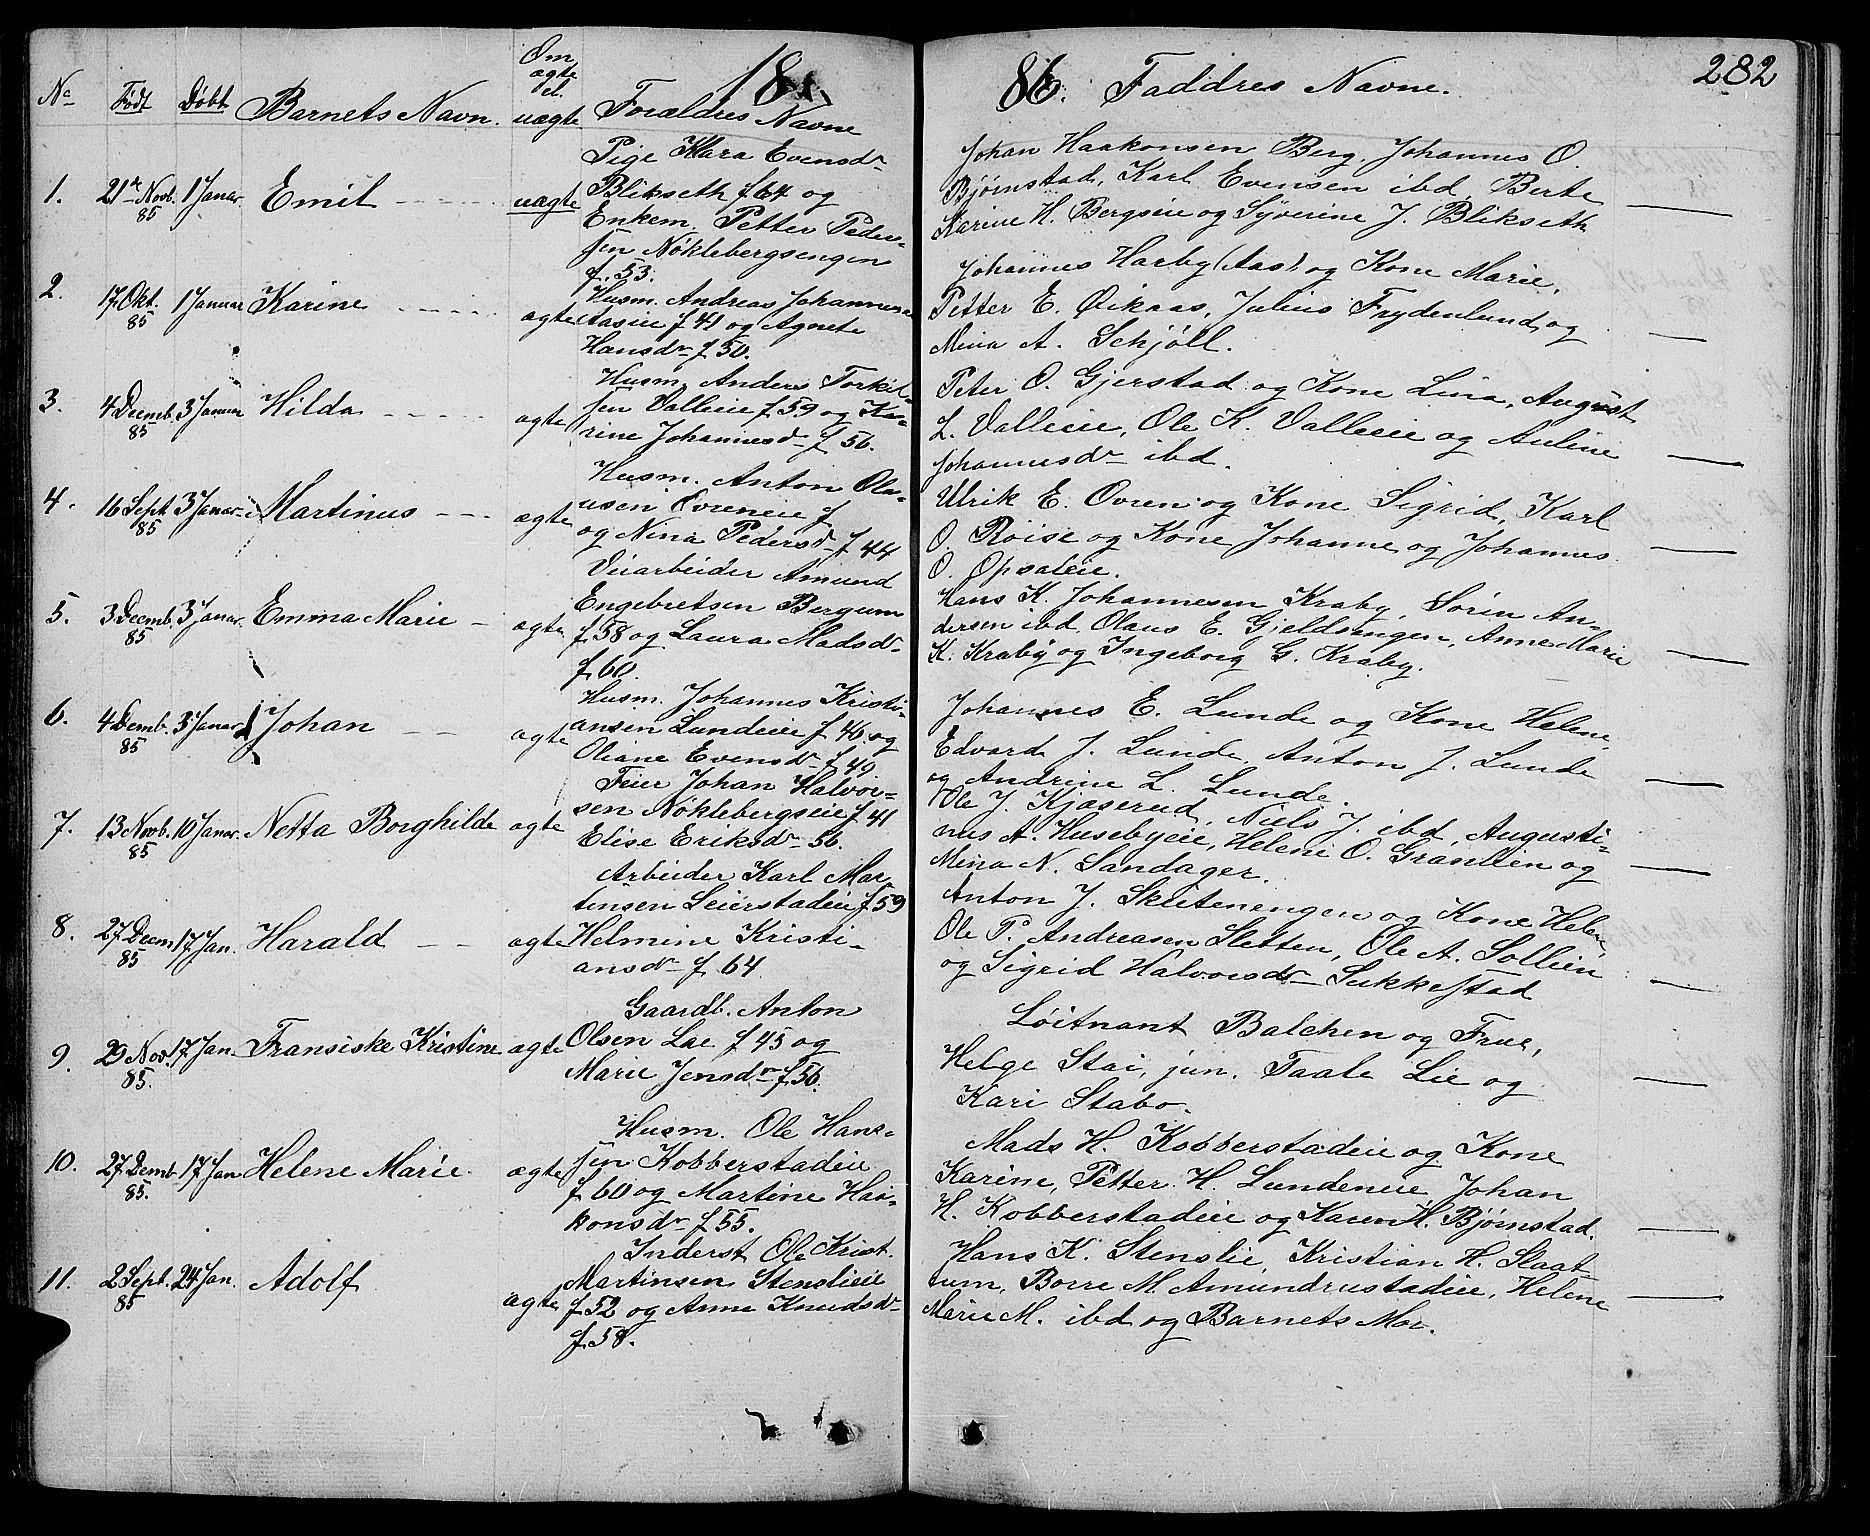 1886. Faddres Navne. 282
No Født Døbt Barnets Navn. Om ægte el. uægte Forældres Navne
1. 21de Novb. 85 1 Januar. Emil uægte
Pige Klara Evensdr
Blikseth f. 64 og
Enkem. Petter Peder-
sen Nøklebergsengen
f. 53.
Johan Haakonsen Berg, Johannes O.
Bjørnstad, Karl Evensen ibd, Berte
Karine H. Bergseie og Syverine J. Blikseth
2. 17 Okt. 85 1 Januar Karine ægte
Husm. Andreas Johannesen
f 41 og Agnete
Hansdr f 50.
Johannes Harby (Aas) og Kone Marie,
Petter E. Øikaas, Julius Frydenlund, og
Mina A. Schjøll.
3. 4 Decmb. 85 3 Januar Hilda ægte
Husm. Anders Torkil-
sen Vallieie f 59 og Ka-
rine Johannesdr f 56.
Peter O. Gjerstad og Kone Lina, August
L. Vallieie, Ole K. Vallieie og Auline
Johannesdr ibd.
4. 16 Sept 85 3 Januar Martinus ægte
Husm. Anton Ola-
usen Ovreneie f
og Nina Pedersdr f 44
Ulrik E. Ovren og Kone Sigrid, Karl
O. Røise og Kone Johanne og Johannes
O. Opsaleie.
5. 3 Decmb. 85 3 Januar. Emma Marie ægte
Veiarbeider Amund
Engebretsen Bergum
f. 58 og Laura Madsdr
f 60.
Hans K. Johannesen Kraby, Sørin An-
dersen ibd, Olaus E. Gjeldsengen, Anne Marie
K. Kraby og Ingeborg G. Kraby.
6. 4 Demb. 85 3 Januar Johan ægte
Husm. Johannes Kristi-
ansen Lundeie f 46. og
Oliane Evensdr f 49
Johannes E. Lunde og Kone Helene,
Edvard J. Lunde, Anton J. Lunde
og Andrine L. Lunde.
7. 13 Novb. 85 10 Januar. Netta Borghilde ægte
Feier Johan Halvor-
sen Nøklebergseie f 41
Elise Eriksdr 56.
Ole J. Kjæserud, Niels J. ibd, Augusti-
nus A. Husebyeie, Helene O. Graslien og
Mina N. Sandager.
8. 27 Decm 85 17 Jan. Harald ægte
Arbeider Karl Mar
tinsen Seierstadeie f 59
Helmine Kristi-
ansdr f 64
Anton J. Skutenengen og Kone Helene
Ole P. Andreasen Sletten, Ole A. Sollien
og Sigrid Halvorsdr Sukkestad
9. 29 Nov. 85. 17 Jan. Fransiske Kristine ægte
Gaardb. Anton
Olsen Lae f 45 og
Marie Jensdr f 56.
Løitnant Balchen og Frue,
Helge Stai, jun. Taale Lie og
Kari Stabo.
10. 27 Demb. 85. 17 Jan Helene Marie. ægte
Husm. Ole Hans-
sen Kobberstadeie
f 60 og Martine Haa-
konsdr f 55.
Mads H. Kobberstadeie og Kone
Karine, Petter H. Lundeneie, Johan
H. Kobberstadeie og Karen H. Bjørnstad.
11. 2 Sept. 85 24 Jan. Adolf ægte
Inderst Ole Krist.
Martinsen Stenslieie
f 52 og Anne Knudsdr
f 58.
Hans K. Stenslie, Kristian H. Slaat-
tum, Borre M. Amundrustadeie, Helene
Marie M. ibd og Barnets Mor.